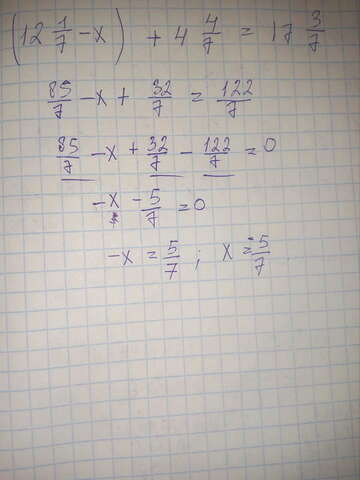 (12 1/7 - x) + 4 4/7 = 17 3/7
85/7 - x + 32/7 = 122/7
85/7 - x + 32/7 - 122/7 = 0
-x - 5/7 = 0
-x = 5/7 ; x = -5/7